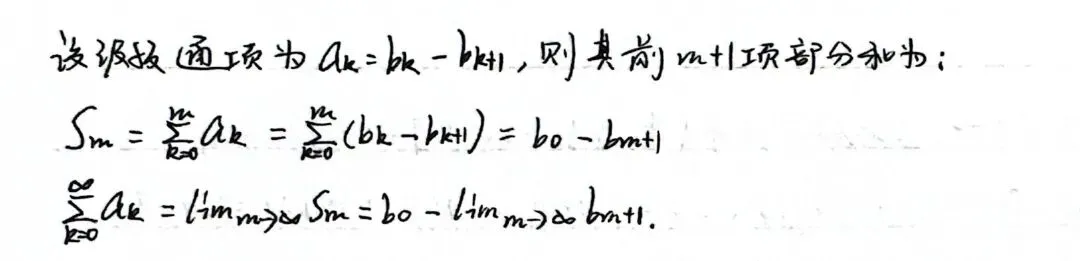 设级数通项为 aₖ = bₖ - bₖ₊₁, 则其前 m+1 项部分和为:
Sₘ = ∑ₖ₌₀ᵐ aₖ = ∑ₖ₌₀ᵐ (bₖ - bₖ₊₁) = b₀ - bₘ₊₁
∑ₖ₌₀^∞ aₖ = limₘ→∞ Sₘ = b₀ - limₘ→∞ bₘ₊₁.